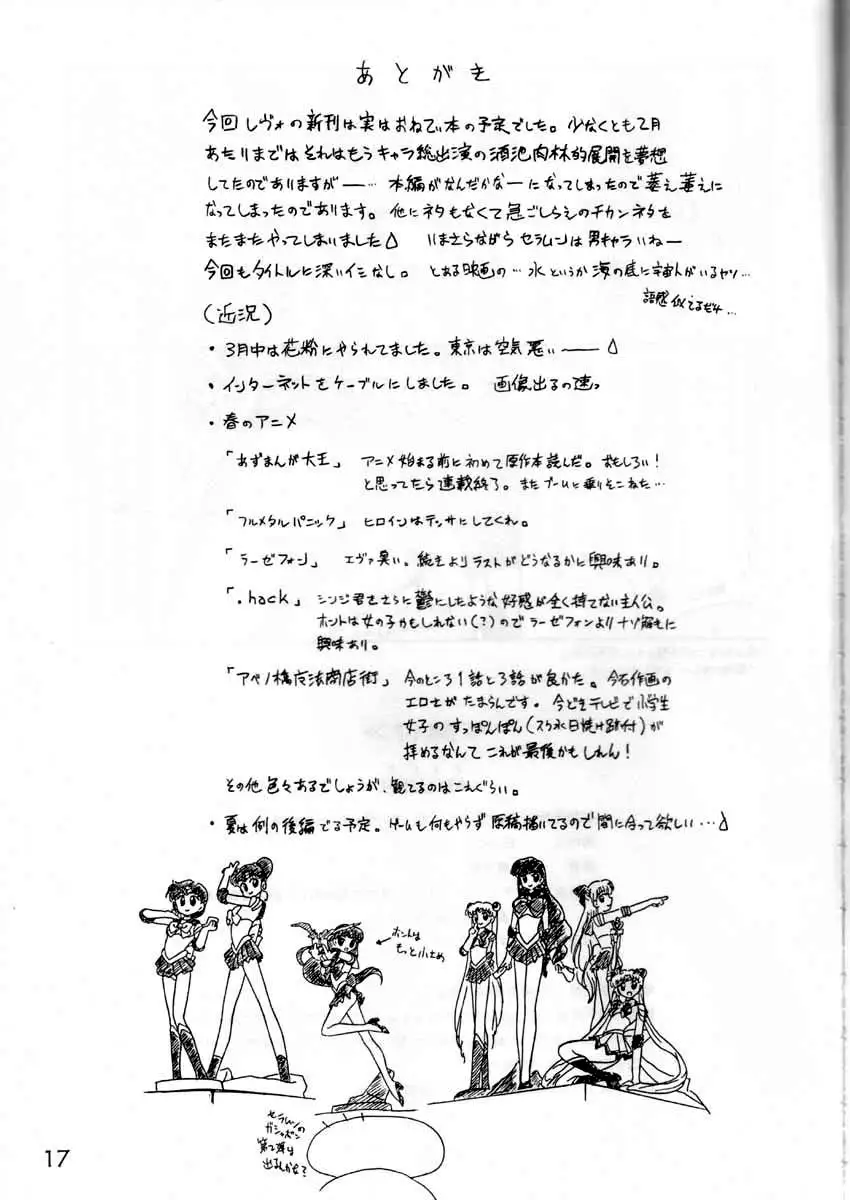 あとがき
今回レヴォの新刊は実はおねてぃ本の予定でした。少なくとも2月
あたりまではそれはもうキャラ総出演の酒池肉林的展開を夢想
してたのでありますがー… 本編がなんだかなーになってしまったので萎え萎えに
なってしまったのであります。他にネタもなくて急ごしらえのチカンネタを
またまたやってしまいました いまさらながらセラムンは男キャラいねー
今回もタイトルに深いイミなし。とある映画の…水というか海の底に宇宙人がいるヤツ…
語感似てるだけ…
(近況)
・3月中は花粉にやられてました。東京は空気悪いー
・インターネットをケーブルにしました。画像出るの速っ
・春のアニメ
「あずまんが大王」 アニメ始まる前に初めて原作本読んだ。おもしろい!
と思ってたら連載終了。またブームに乗りそこねた…
「フルメタルパニック」 ヒロインはテッサにしてくれ。
「ラーゼフォン」 エヴァ臭い。続きよりラストがどうなるかに興味あり。
「.hack」 シンジ君をさらに鬱にしたような好感が全く持てない主人公。
ホントは女の子かもしれない(?)のでラーゼフォンよりナゾ解きに
興味あり。
「アベノ橋魔法商店街」 今のところ1話と3話が良かった。
その他色々あるでしょうが、観てるのはこれぐらい。
・夏は例の後編でる予定。ゲームも何もやらず原稿描いてるので間に合って欲しい…
ホントはもっと小さめ
セラムンのガシャポン
第2弾は
出んかな?
17